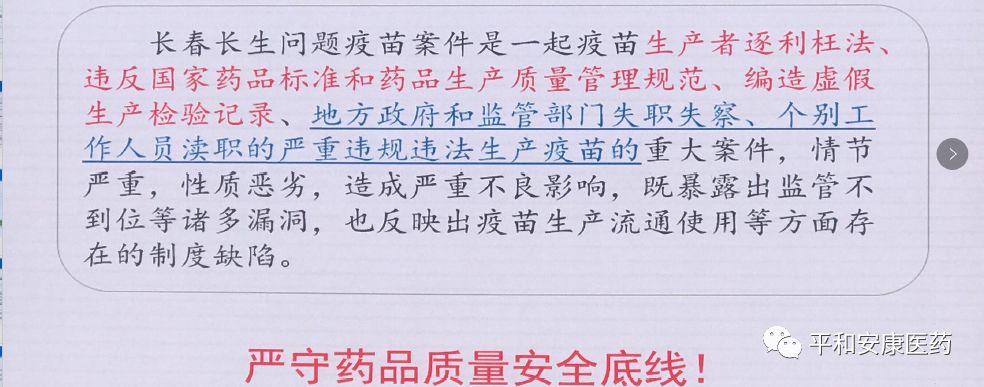 长春长生问题疫苗案件是一起疫苗生产者逐利枉法、
违反国家药品标准和药品生产质量管理规范、编造虚假
生产检验记录、地方政府和监管部门失职失察、个别工
作人员渎职的严重违规违法生产疫苗的重大案件，情节
严重，性质恶劣，造成严重不良影响，既暴露出监管不
到位等诸多漏洞，也反映出疫苗生产流通使用等方面存
在的制度缺陷。
严守药品质量安全底线！
平和安康医药